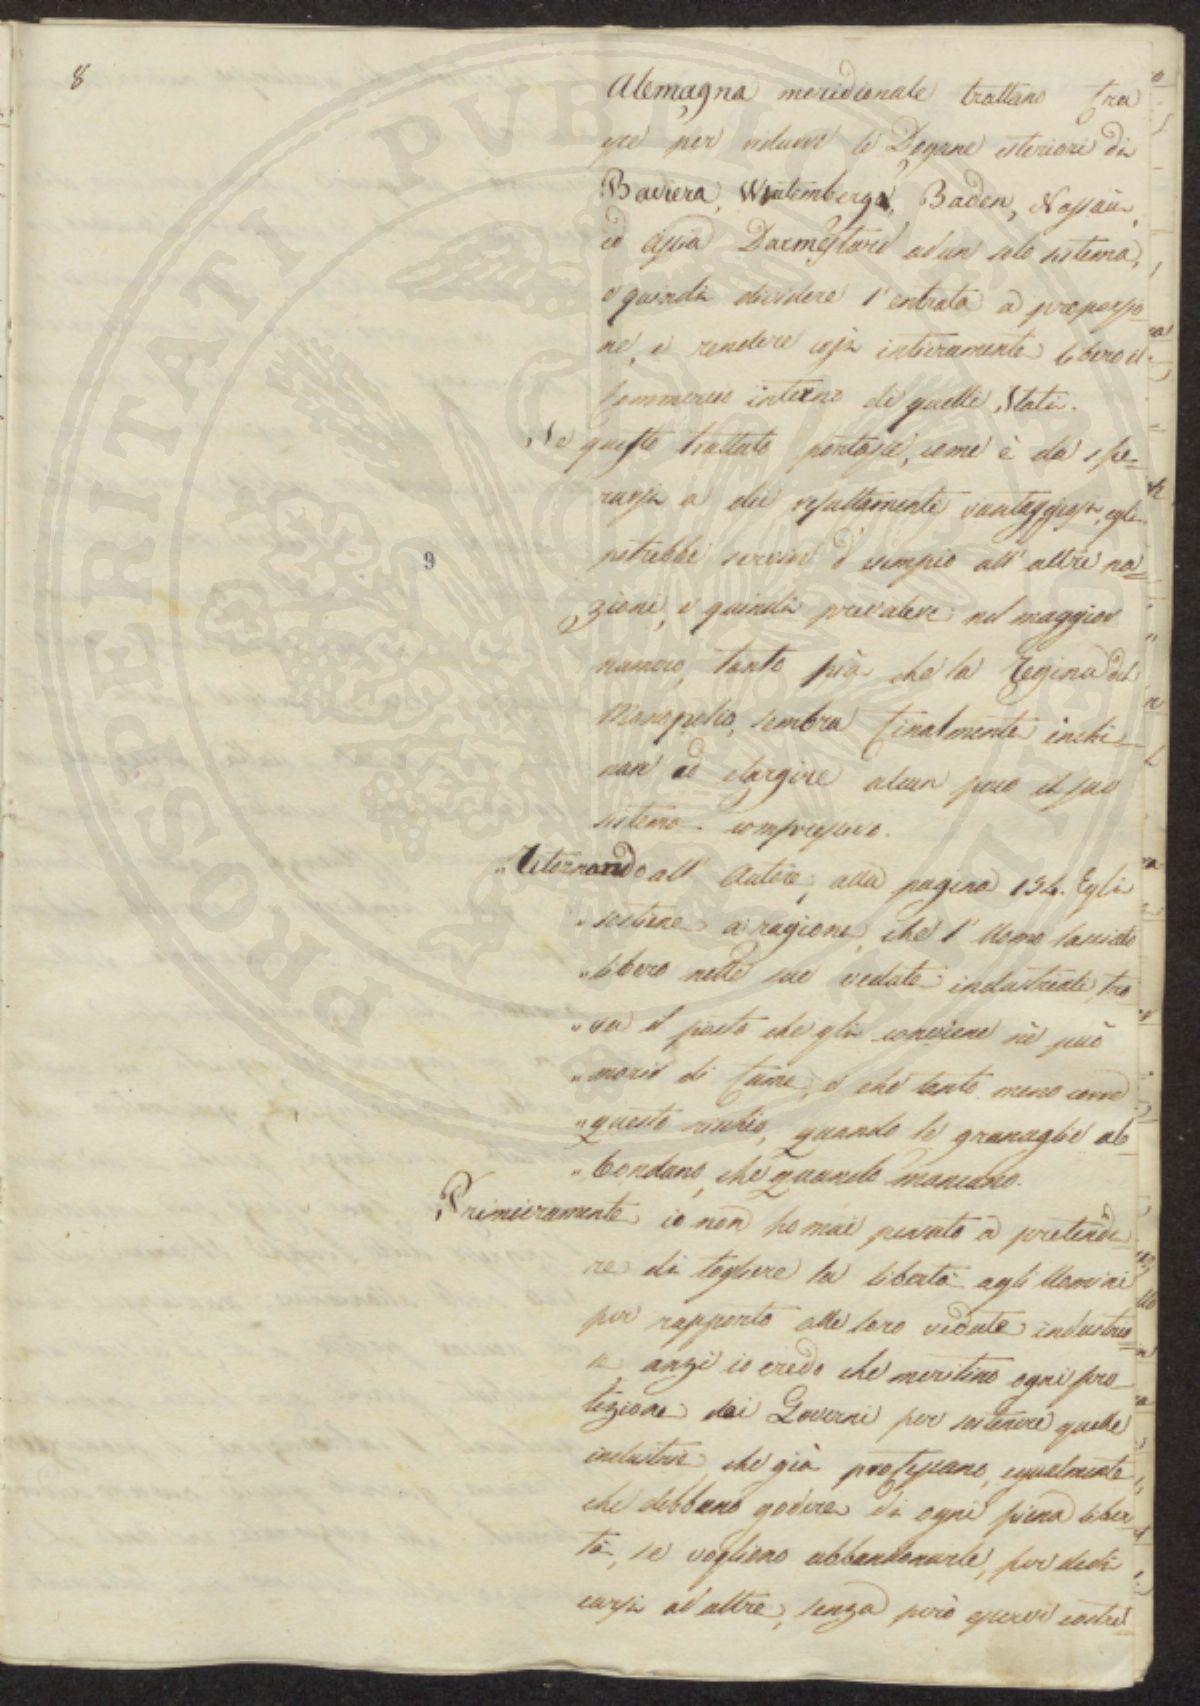 8
Alemagna meridionale trattano fra
essi per ridurre le Dogane esteriori di
Baviera, Wirtemberga, Baden, Nassau,
ed Assia Darmestard ad un solo sistema,
e quindi dividere l'entrata a proporzio
ne, e rendere così intieramente libero il
commercio interno di quelli Stati.
Se questo trattato portasse, come è da spe=
rarsi a dei resultamenti vantaggiosi, egli
potrebbe servire d'esempio all'altre na=
zioni, e quindi prevalere nel maggior
numero, tanto più che la Regina del
Monopolio, sembra finalmente inchi=
nare ad elargire alcun poco il suo
sistema compressivo.
9
"Ritornando all'Autore, alla pagina 134. Egli
"sostiene a ragione, che l'Uomo lasciato
"libero nelle sue vedute industriali, tro
"va il posto che gli conviene nè può
"morir di fame, e che tanto meno corre
"questo rischio, quando le granaglie ab=
"bondano, che quando mancano.
Primieramente io non ho mai pensato a pretende=
re di togliere la libertà agli Uomini
per rapporto alle loro vedute industria
li anzi io credo che meritino ogni pro=
tezione dai Governi per sostenere quelle
industrie che già professano, egualmente
che debbano godere di ogni piena liber
tà, se vogliono abbandonarle, per dedi
carsi ad altre, senza però esservi costre=
PROSPERITATI PUBLICAE